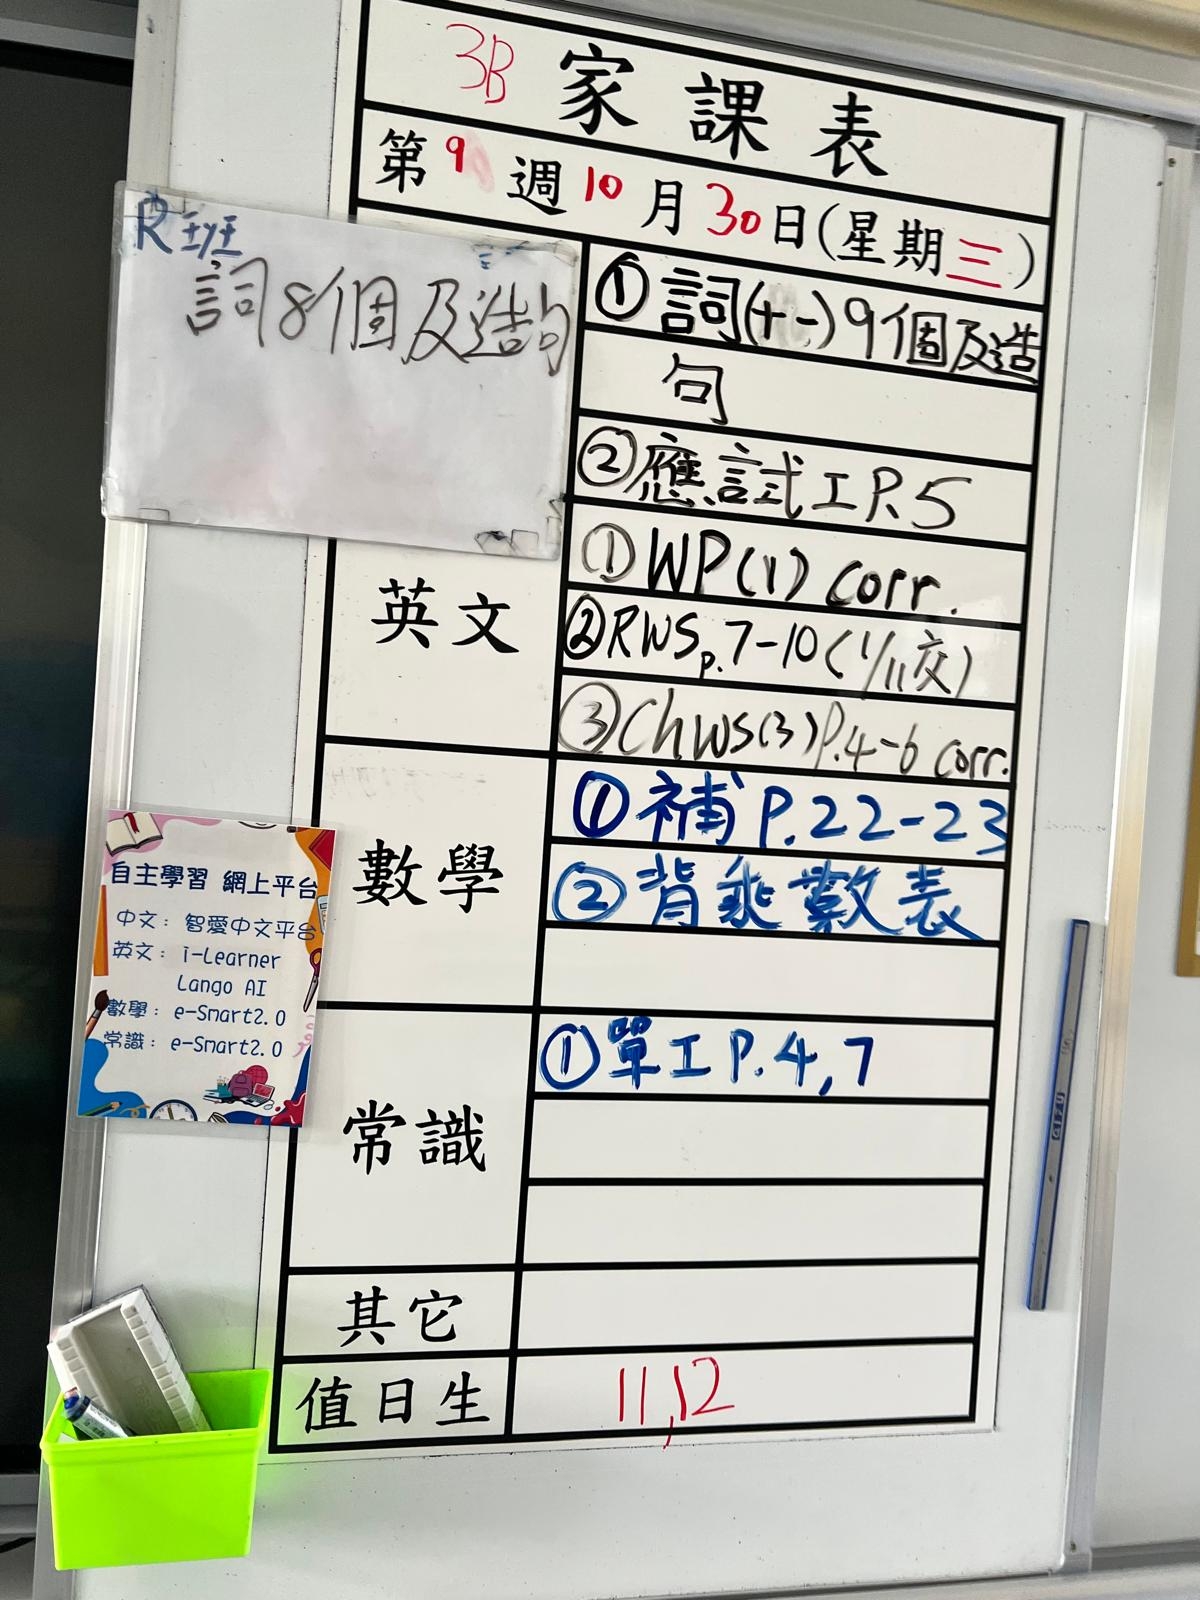 3B 家課表
第9週10月30日(星期三)
R班
詞8個及造句
①詞(十一)9個及造
句
②應試工P.5
英文
①WP(1) corr.
②RWS p.7-10(1/11交)
③Ch WS(3)P.4-6 corr.
數學
①補P.22-23
②背乘數表
常識
①單工P.4,7
其它
值日生
11,12
自主學習 網上平台
中文: 智愛中文平台
英文: i-Learner
Lango AI
數學: e-Smart2.0
常識: e-Smart2.0